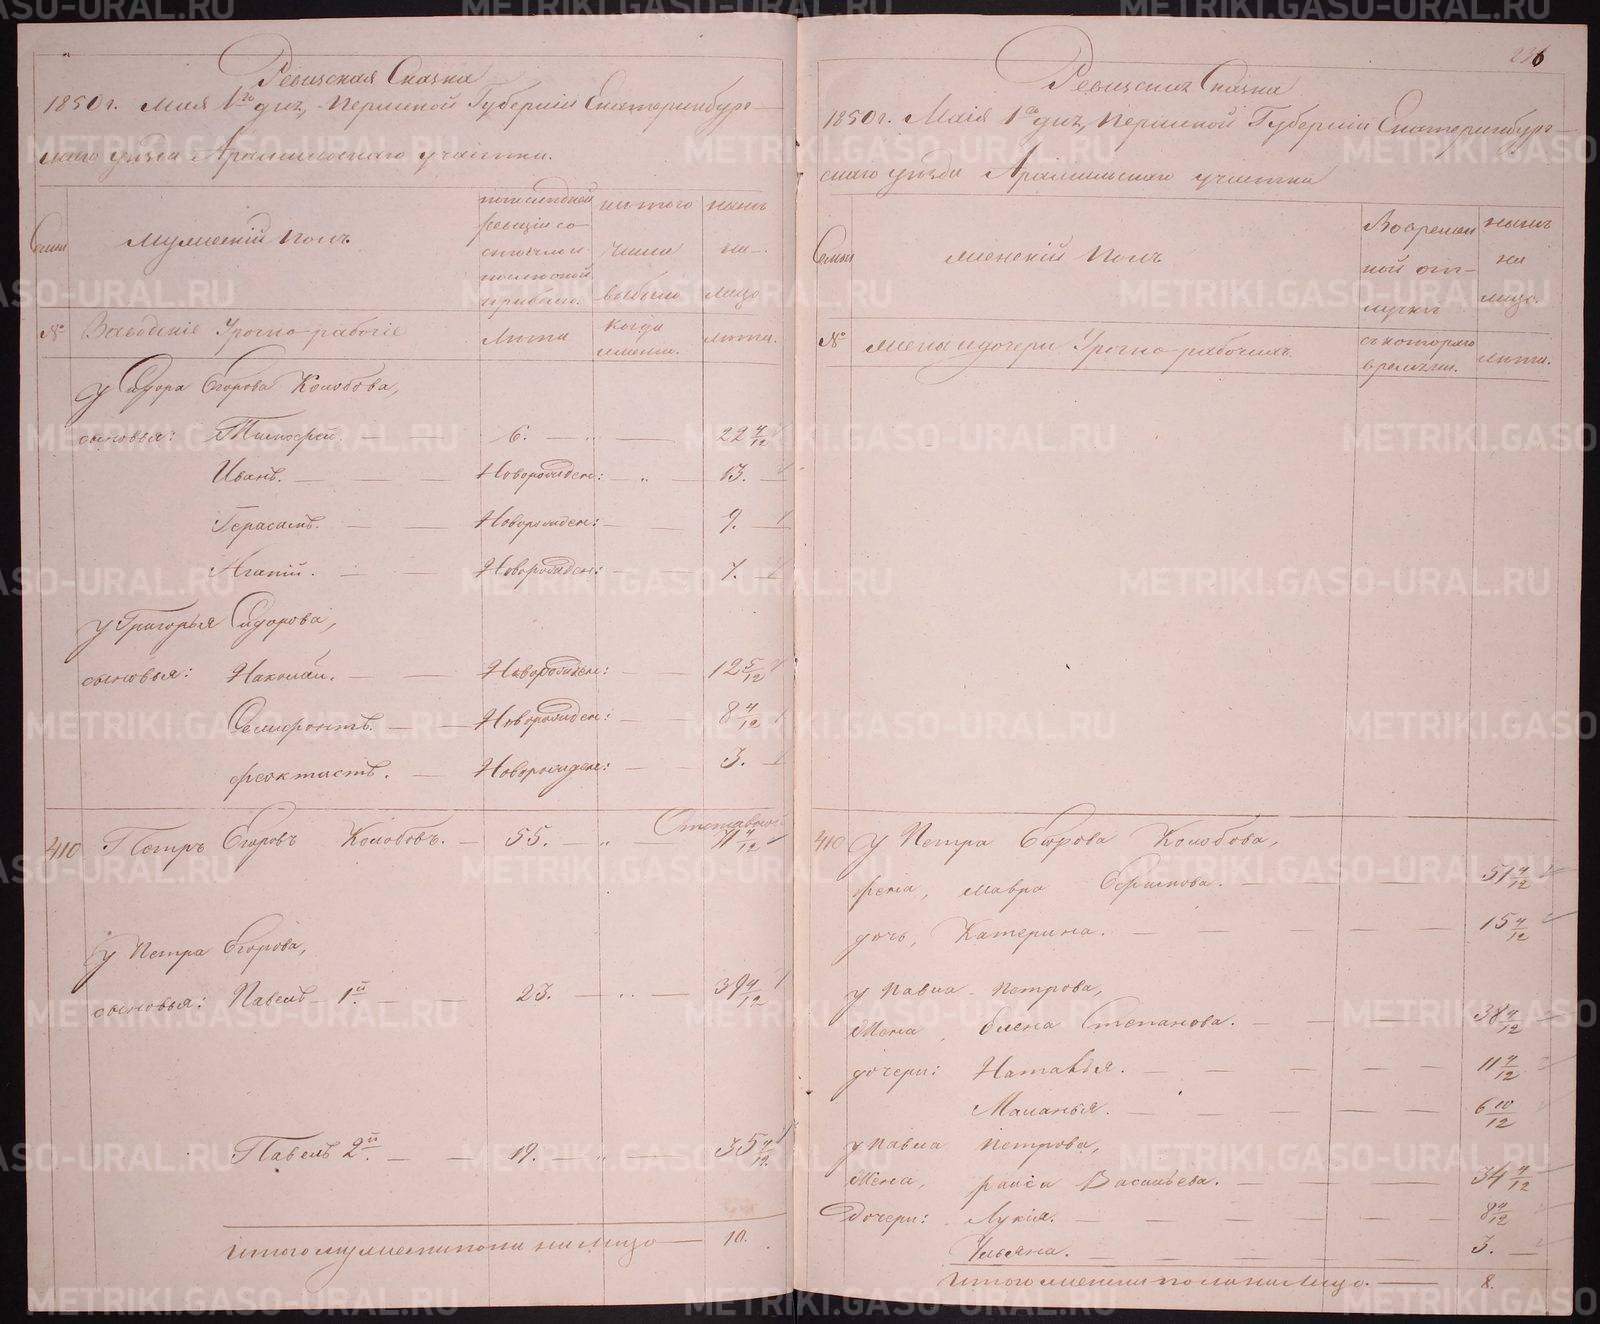 Ревизская Сказка
1850 г. Мая 1го дня, Пермской Губернiи Екатеринбург-
скаго уѣзда Арамильскаго участка.
Семьи
Мужескiй полъ.
по последней ревизiи со-стояло и после оной прибыло.
изъ того числа выбыло
нынѣ на-лицо
№
Заводскiе Урочно-рабочiе
Лѣта
Когда именно.
лѣта.
у Сидора Егорова Колобова,
сыновья: Тимофей. 6. 22 4/12
Иванъ. Новорожден: 13.
Герасимъ. Новорожден: 9.
Агапiй. Новорожден: 7.
у Григорья Сидорова,
сыновья: Николай. Новорожден: 12 5/12
Новорожден: 8 4/12
Феоктистъ. Новорожден: 3.
410 Петръ Егоровъ Колобовъ. 55. 71 4/12
у Петра Егорова,
сыновья: Павелъ 1й. 23. 39 4/12
Павелъ 2й. 19. 35 4/12
Итого мужеска пола на лицо 10.
Ревизская Сказка
1850 г. Маiя 1го дня, Пермской Губернiи Екатеринбург-
скаго уѣзда Арамильскаго участка
Семьи
женскiй полъ
Во времен ной от-лучкѣ
нынѣ на лицо.
№
жена и дочери Урочно-рабочихъ
съ котораго времени.
лѣта.
410 у Петра Егорова Колобова,
жена, Мавра Ефимова. 51 4/12
дочь, Катерина. 15 4/12
у Павла Петрова,
Жена, Елена Степанова. 38 4/12
дочери: Наталья. 11 4/12
Маланья. 6 10/12
у Павла Петрова,
Жена, раиса Васильева. 34 4/12
Дочери: Лукiя. 8 4/12
Ульяна. 3.
Итого женска пола на лицо. 8.
METRIKI.GASO-URAL.RU